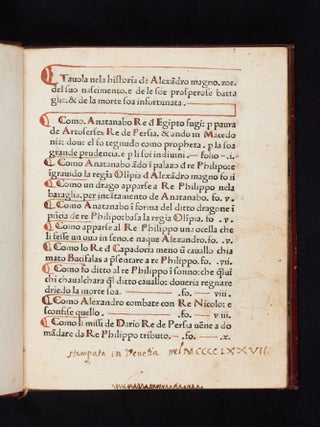 Tauola nela historia de Alexādro magno. zoe.
del suo nascimento. e de le soe prosperose batta
glie: & de la morte soa infortunata.
Como. Anatanabo Re d Egipto fugi: p paura
de Artoserses Re de Persia. & ando in Macedo
nia: doue el fo tegnudo como propheta. p la soa
grande prudencia. e p li soi indiuini. — folio .ii.
Como Anatanabo ādo i palazo d re Philipo: e
igrauido la regia Olipia d'Alexādro magno fo ii
Como un drago apparse a Re Philippo nela
bataglia. per incitamento de Anatanabo. fo. v.
Como Anatanabo i forma del ditto dragone i
p̄sēcia de re Philipo: basa la regia Olīpia. fo v.
Como apparse al Re Philippo un'ocella che
li feise un ouo in seno. e naque Alexandro. fo. v.
Como lo Re d Capadocia meno ū cauallo chia
mato Bucifalas a p̄sentare a re Philippo. fo. vii.
Como fo ditto al re Philippo ī sonno: che q̄lui
chi chaualchara q̄l ditto cauallo: doueria regnare
driedo la morte soa. — .fo. — viii.
Como Alexandro combate con Re Nicolo: e
sconfise quello. — .fo. — viii.
Como li missi de Dario Re de Persia uēne a do
mādare da Re Philippo tributo. — .fo. — .x.
stampata in Venetia nel MCCCCLXXVII.